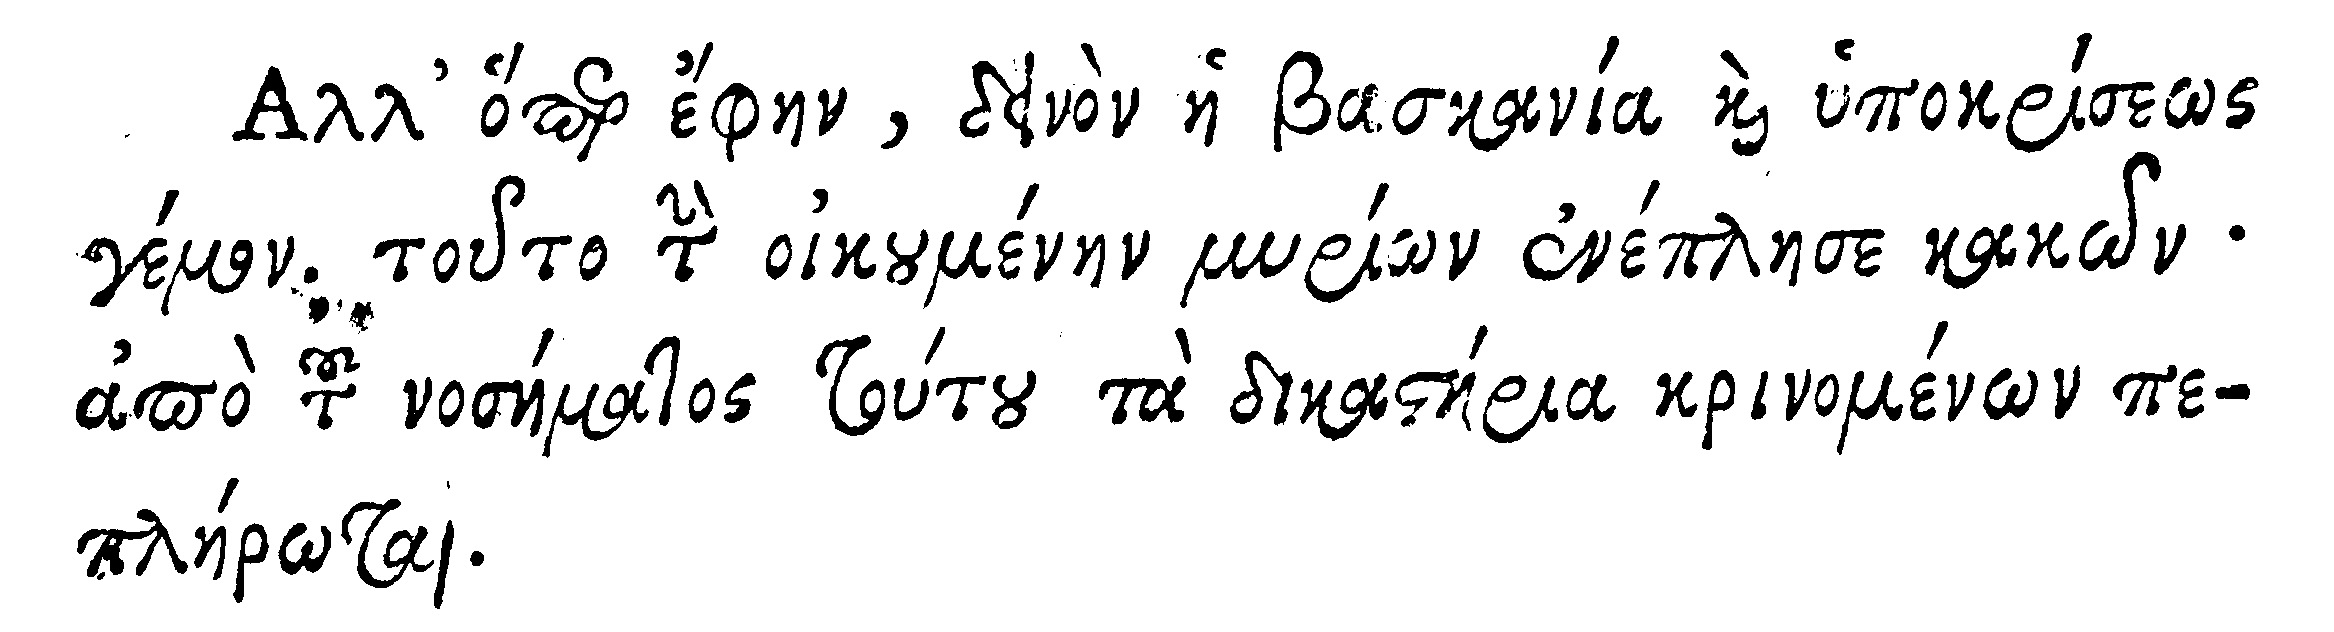 Αλλ' ὅπερ ἔφην, δεινὸν ἡ βασκανία καὶ ὑποκρίσεως
γέμον. τοῦτο τὴν οἰκουμένην μυρίων ἀνέπλησε κακῶν.
ἀπὸ τοῦ νοσήματος τούτου τὰ δικαστήρια κρινομένων πε-
πλήρωται.